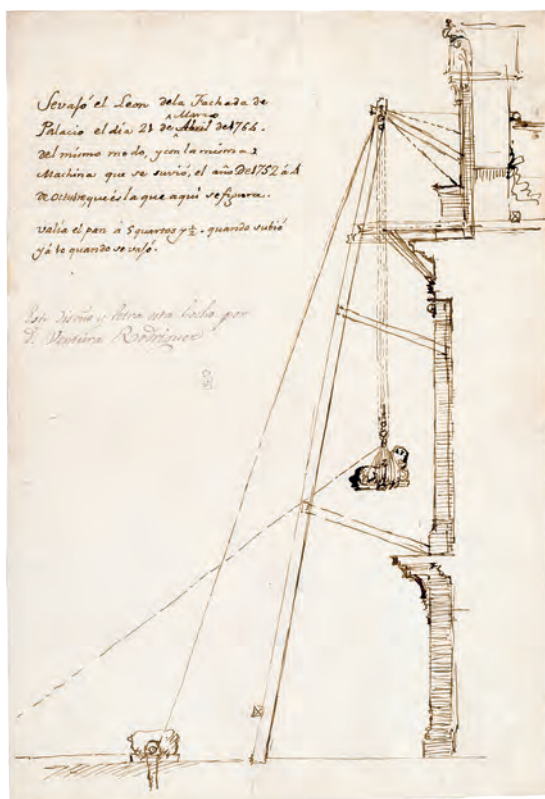 Sevajó el Leon dela Fachada de
Marzo
Palacio el dia 21 de Abril de 1764.
del mismo modo, y con la misma
Machina que se suvió, el año de 1752 á 4
de octubre que és la que aqui se figura.
valia el pan à 5 quartos y ½. quando subió
y à 10 quando se vajó.
Este diseño y letra esta hecho por
D. Ventura Rodriguez